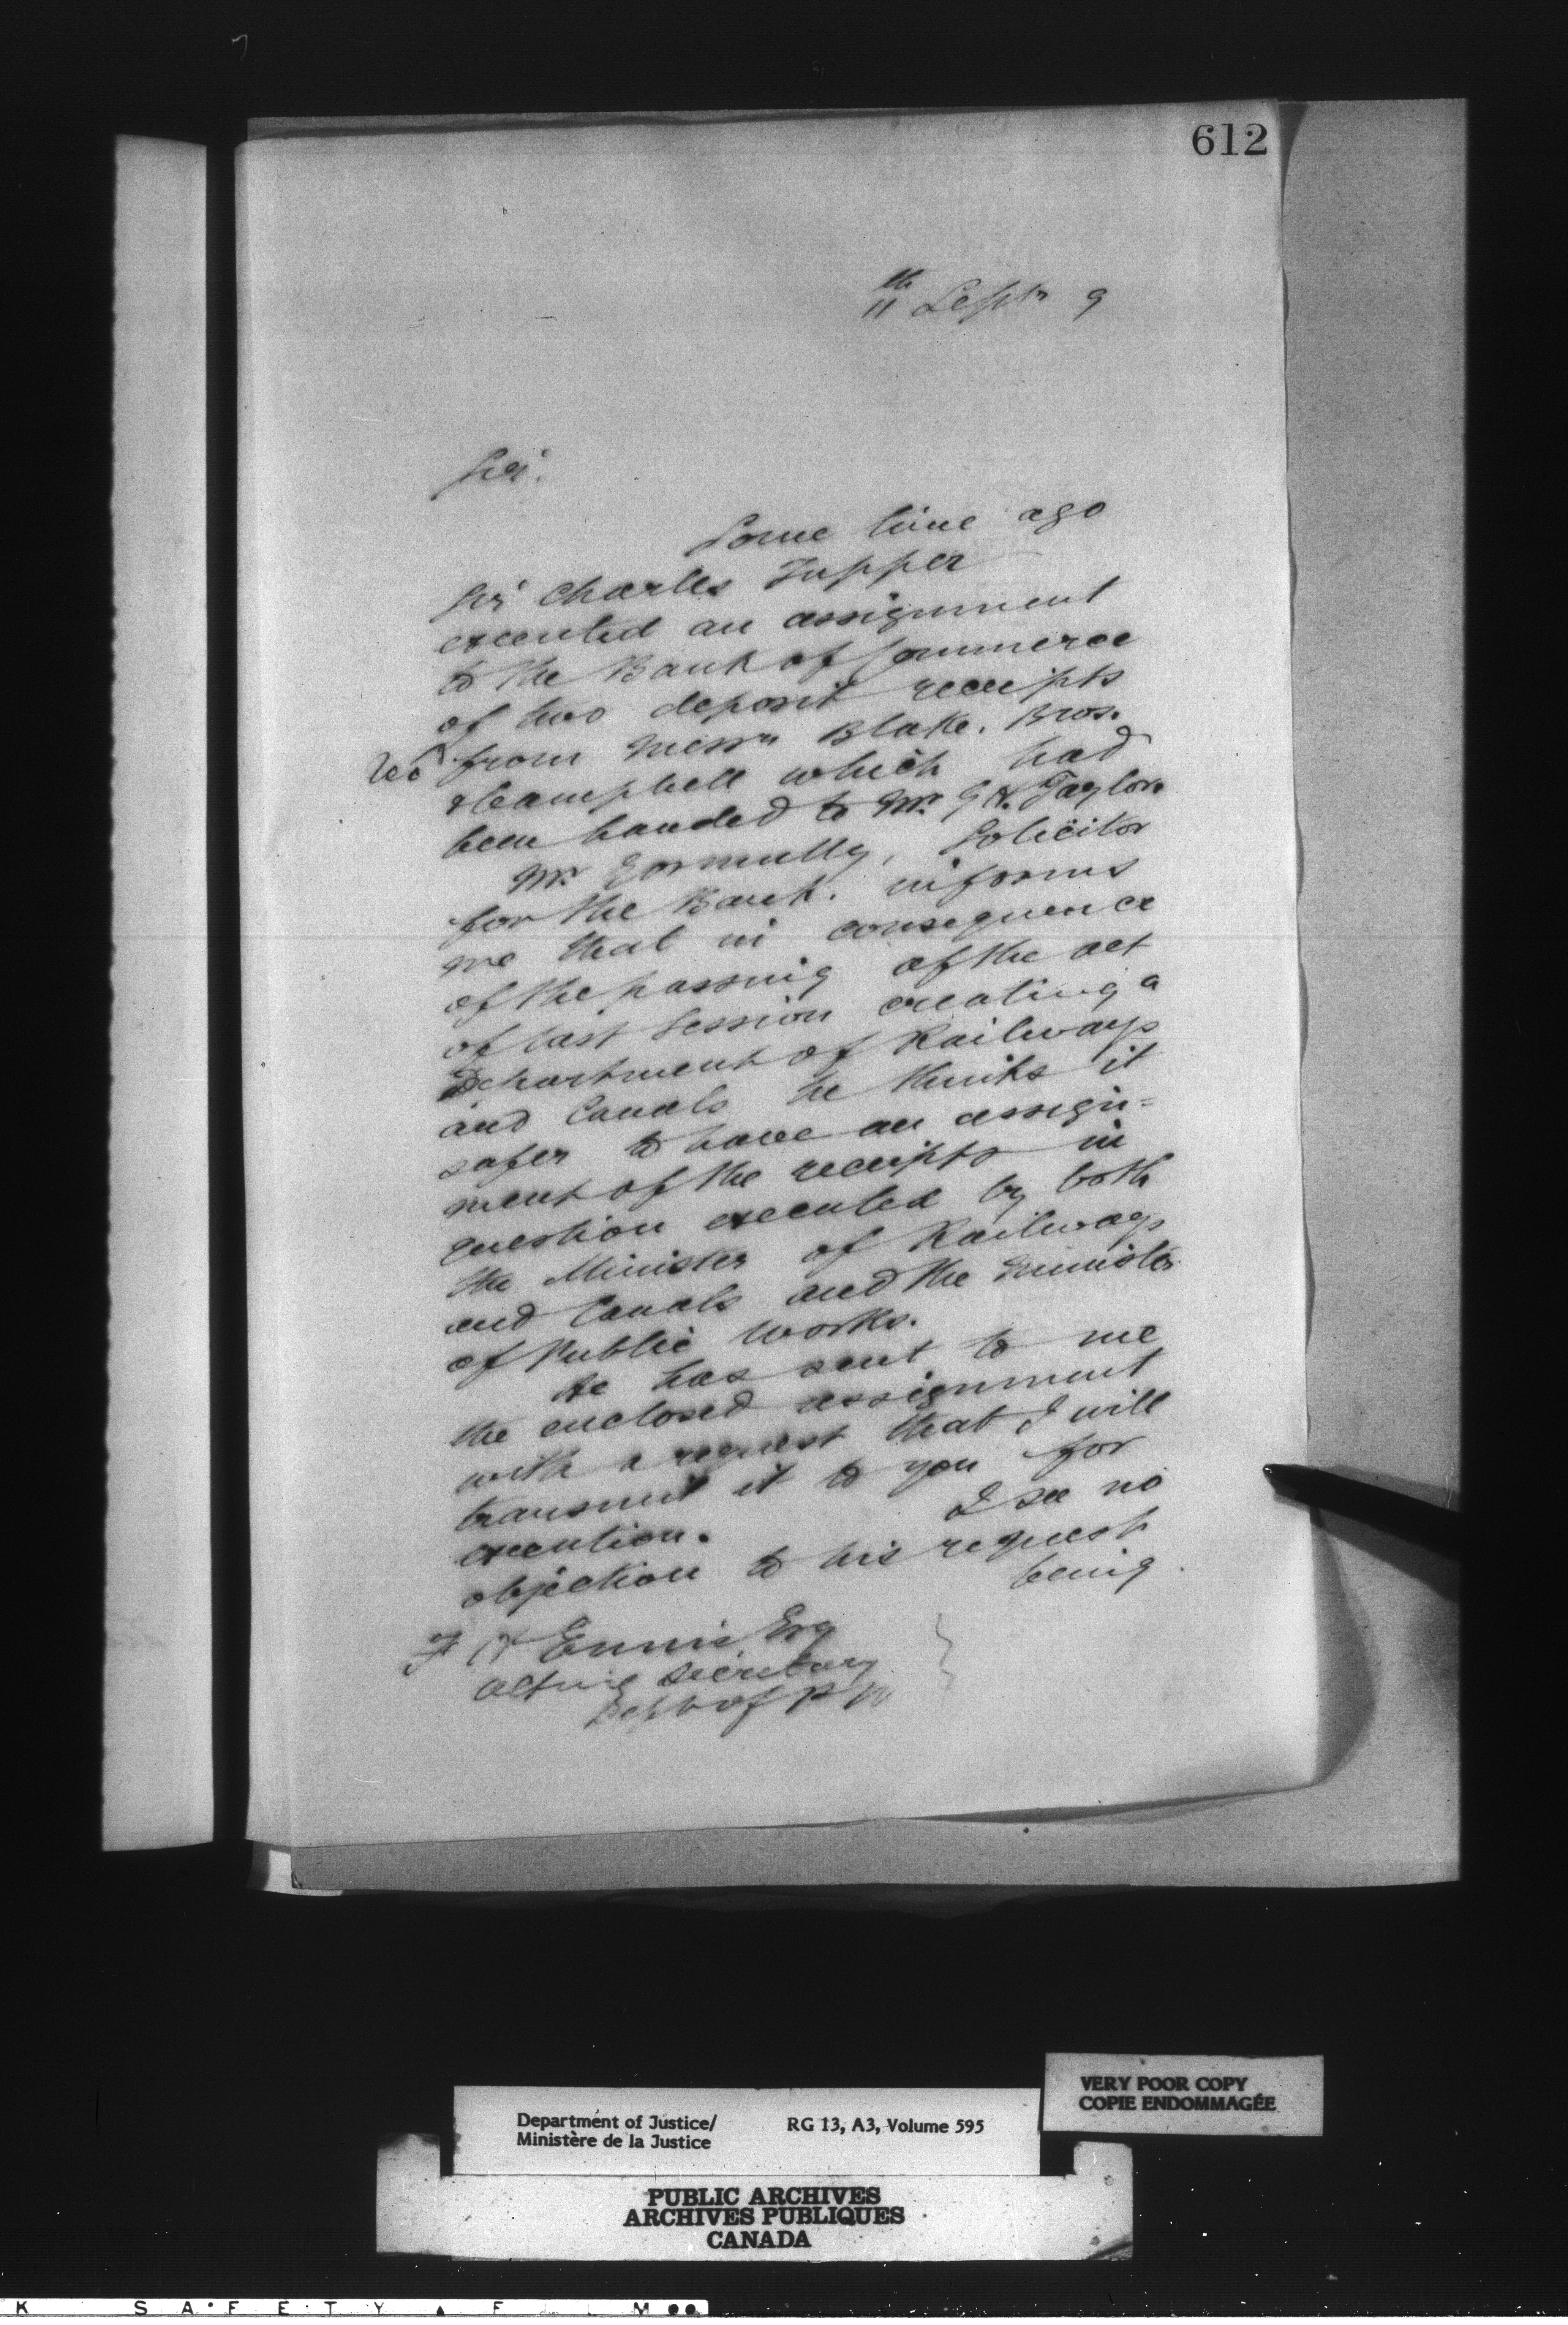 612
11th Septr 9
Sir.
Some time ago
Sir Charles Tupper
executed an assignment
to the Bank of Commerce
of two deposit receipts
from Messrs Blake. Bros.
& Campbell which had
been handed to Mr. G H. Taylor.
Mr. Gormully, Solicitor
for the Bank. informs
me that in consequence
of the passing of the act
of last Session creating a
Department of Railways
and Canals he thinks it
safer to have an assign=
ment of the receipts in
question executed by both
the Minister of Railways
and Canals and the Minister
of Public Works.
He has sent to me
the enclosed assignment
with a request that I will
transmit it to you for
execution. I see no
objection to his request
being
F H Ennis Esq
Acting Secretary
Dept of P W
Department of Justice/
Ministère de la Justice
RG 13, A3, Volume 595
VERY POOR COPY
COPIE ENDOMMAGÉE
PUBLIC ARCHIVES
ARCHIVES PUBLIQUES
CANADA
K SAFETY F M